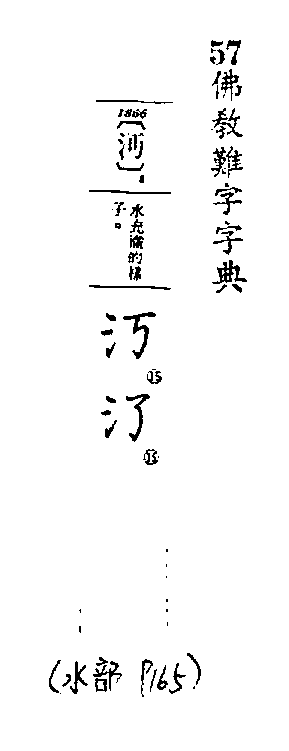 57佛教難字字典
1866
【沔】
水充滿的樣
子。
⑮
(水部 P165)